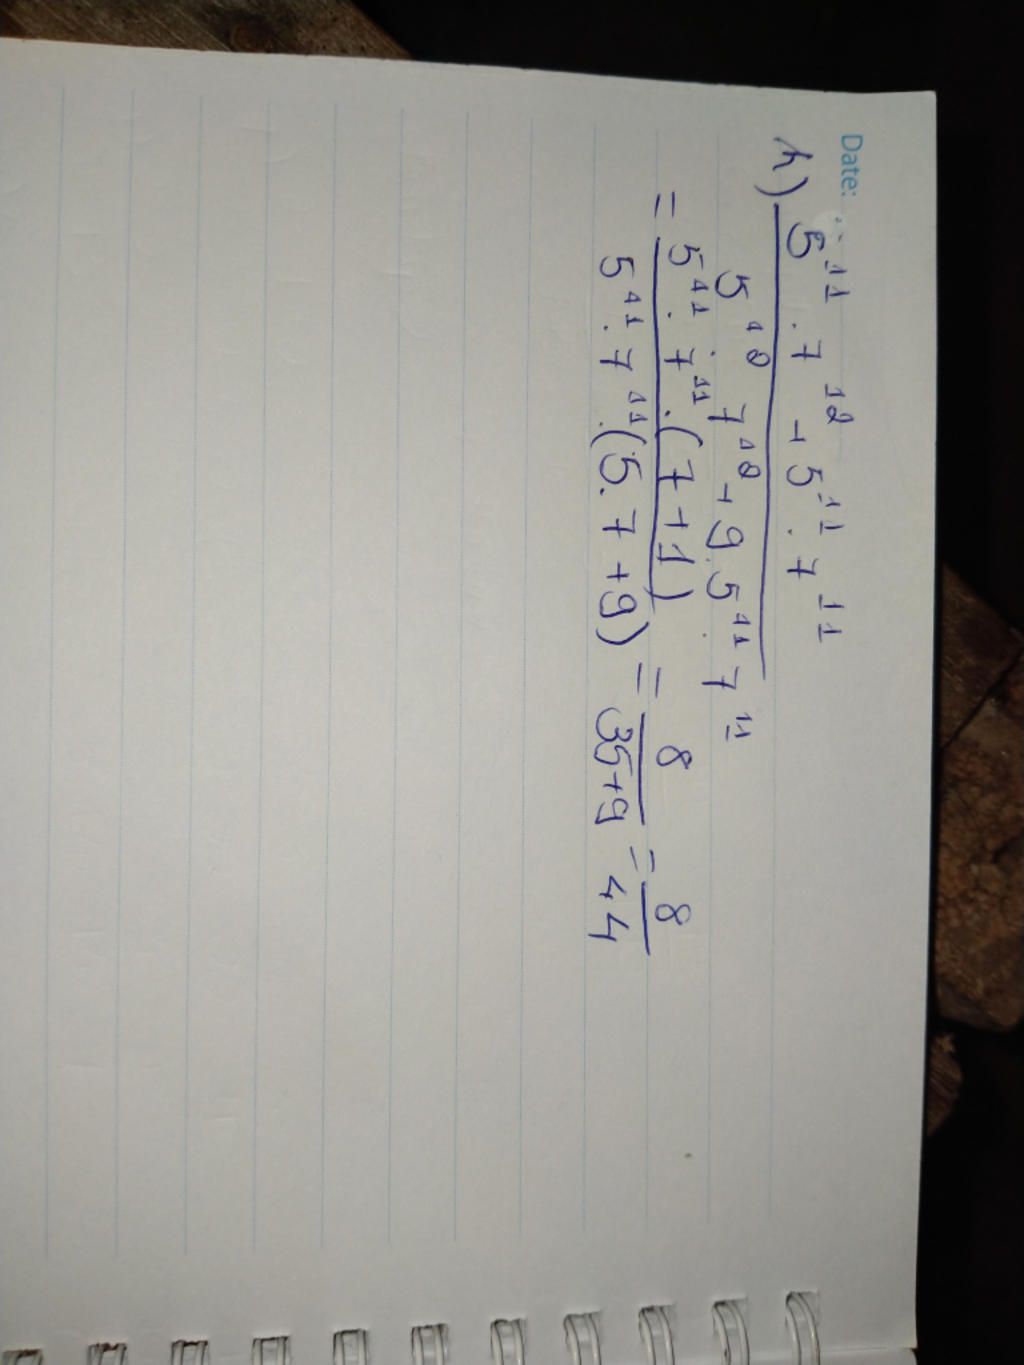 Date:
h) 5¹¹ . 7¹² + 5¹¹ . 7¹¹
5¹² . 7¹² + 9 . 5¹¹ . 7¹¹
= 5¹¹ . 7¹¹ . (7 + 1) = 8 = 8
5¹¹ . 7¹¹ . (5 . 7 + 9) = 35 + 9 44